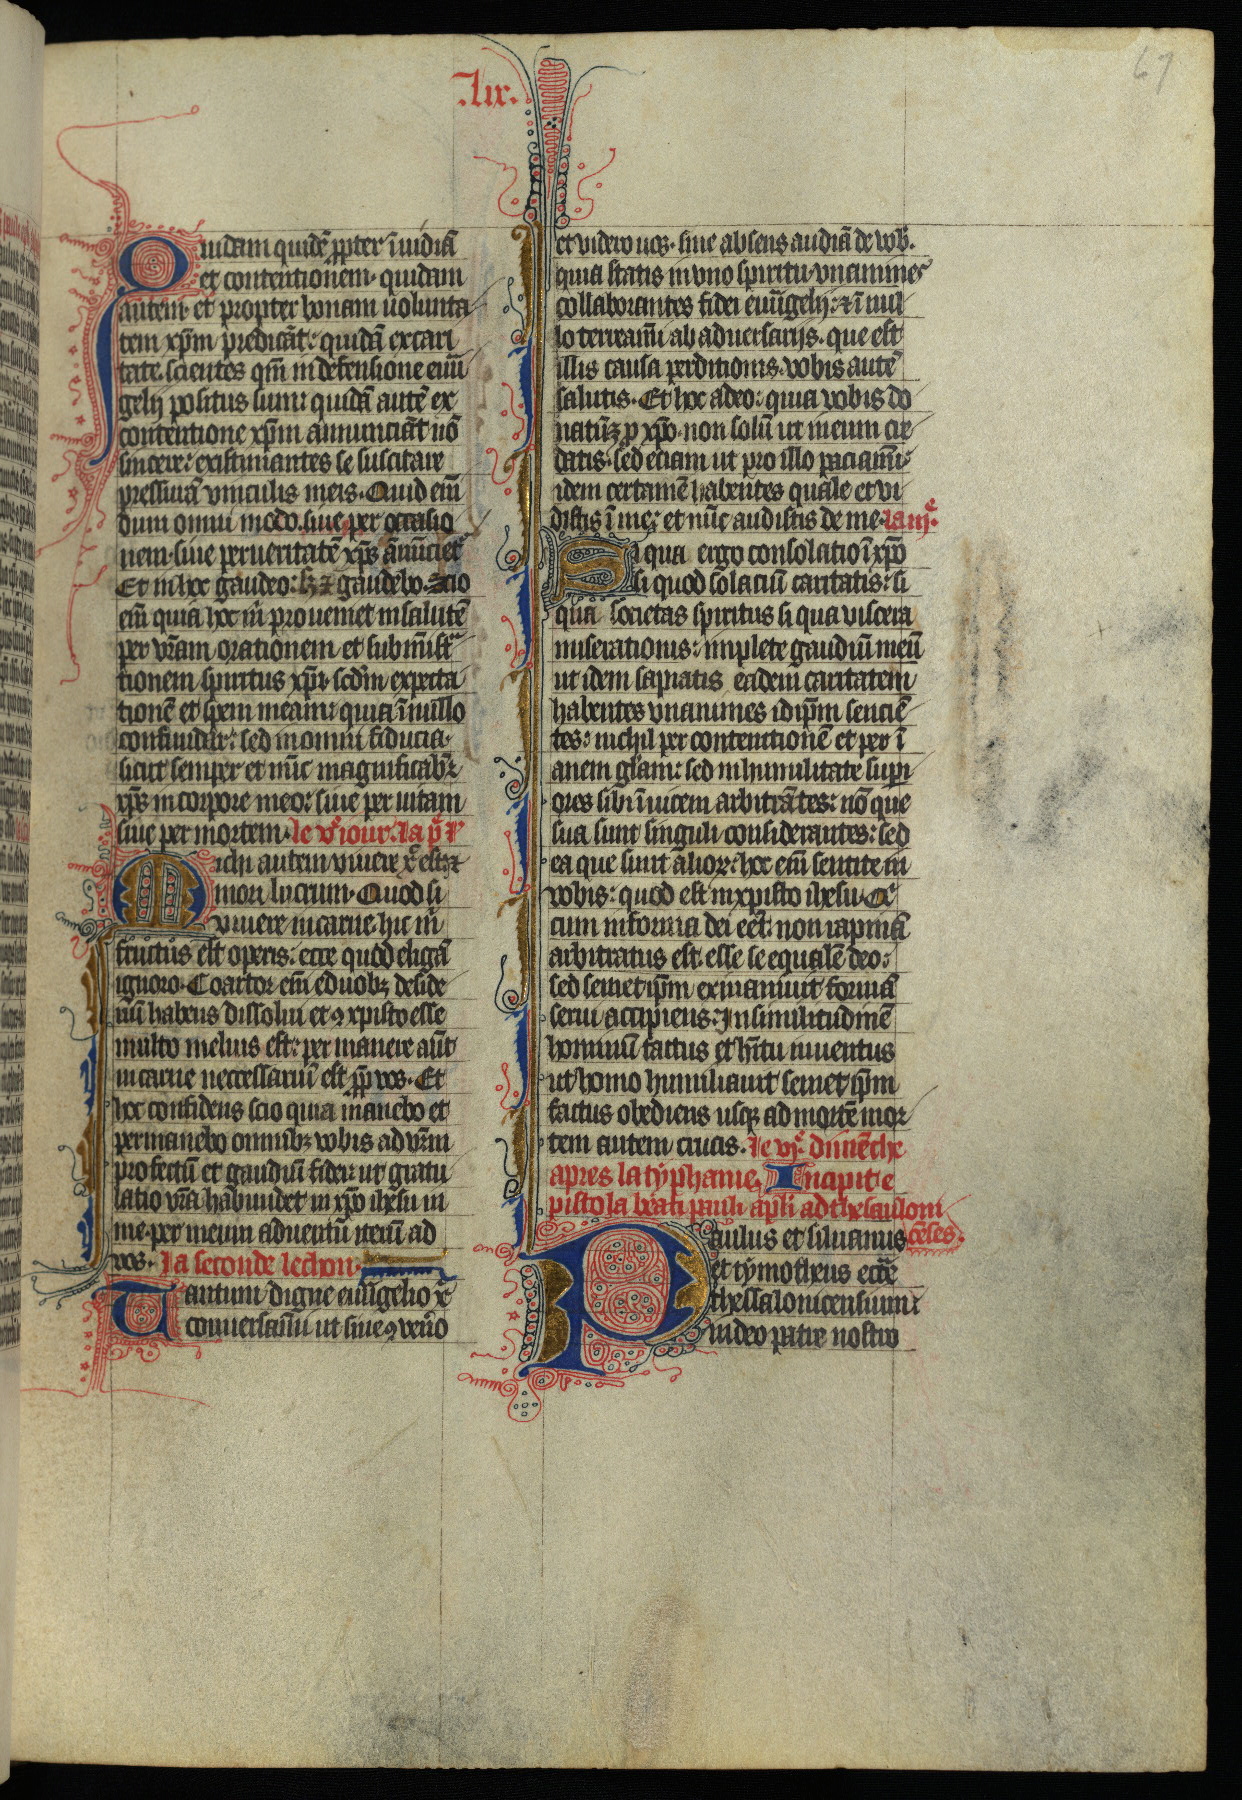 67
.lix.
Quidam quidē ꝓpter īuidiā
et contentionem· quidam
autem et propter bonam uolunta
tem xp̄m predicāt: quidā ex cari
tate. scientes qm̄ in defensione euū
gelij positus sum: quidā autē ex
contentione xp̄m annunciāt nō
sincere: existimantes se suscitare
pressurā vinculis meis· Quid eīm
dum omni modo. siue per occasio
nem· siue per ueritatē xp̄s ānūcietᷣ
Et in hoc gaudeo: sꝫ ⁊ gaudebo. Scio
eīm quia hoc m̄ proueniet in salutē
per vr̄am orationem et submīstᷓ
tionem spiritus xp̄i· scd̄m expecta
tionē et spem meam: quia ī nullo
confundar: sed in omni fiducia·
sicut semper et nūc magnificabᷣ⁊
xp̄s in corpore meo: siue per uitam
siue per mortem· le vͤ iour. la pͬ l'
Michi autem viuere xͨ est: ⁊
mori lucrum· Quod si
viuere in carne· hic m̄
fructus est operis: ecce quod eligā
ignoro· Coartor eīm e duobꝫ deside
riū habens dissolui et ꝯ xpisto esse
multo melius est: per manere aūt
in carne neccessariū est ꝓp̄ vos· Et
hoc confidens scio quia manebo et
permanebo omnibꝫ vobis ad vr̄m
profectū et gaudiū fidei: ut gratu
latio vr̄a habundet in xp̄o ih̄esu in
me· per meum aduentū iterū ad
vos· la seconde lechon·
Tantum digne euūgelio xͥ
conuersam̄i ut siue ꝯ ven̄o
et videro uos· siue absens audiā de vob̄.
quia statis in vno spiritu· vnanimes
collaborantes fidei euūgelij: ⁊ ī nul
lo terream̄i ab aduersarijs· que est
illis causa perditionis· vobis autē
salutis· Et hoc a deo: quia vobis do
natūꝫ ꝑ xp̄o· non solū ut in eum cre
datis· sed eciam ut pro illo paciam̄i·
idem certamē habentes quale et vi
distis ī me: et nūc audistis de me· la iijͤ·
Si qua ergo consolatio ī xp̄o
si quod solaciū caritatis: si
qua societas spiritus si qua viscera
miserationis: implete gaudiū meū
ut idem sapiatis eadem caritatem
habentes vnanimes idip̄m sencien̄
tes: nichil per contentionē et per ī
anem gl̄am: sed in humilitate supi
ores sibi īuicem arbitrātes: nō que
sua sunt singuli considerantes: sed
ea que sunt alioꝝ: hoc eīm sentite in
vobis: quod est in xpisto ih̄esu· Qͥ
cum in forma dei eēt: non rapinā
arbitratus est esse se equalē deo:
sed semetip̄m exinaniuit formā
serui accipiens: In similitudinē
hominū factus et h̄itu inuentus
ut homo humiliauit semet ip̄m
factus obediens usqꝫ ad mortē mor
tem autem crucis. le vjͤ. dimēche
apres la typhanie, Incipit e
pistola beati pauli apl̄i ad thessaloni
cēses·
Paulus et siluanus
et tymotheus eccl̄e
thessalonicensium:
in deo patre nostro